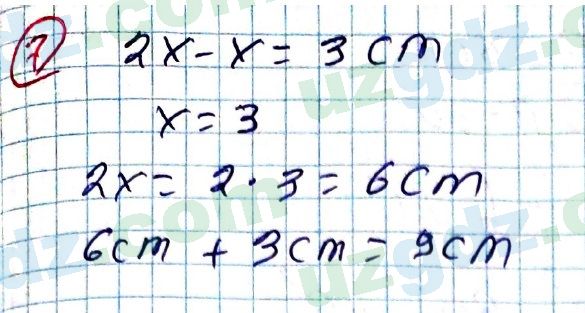 7 2x - x = 3 cm
x = 3
2x = 2 · 3 = 6 cm
6 cm + 3 cm = 9 cm